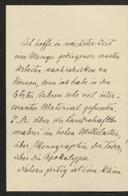 Ich hoffe in nächster Zeit
eine Menge gediegener
Arbeiten nachschicken zu
können, denn ich habe in den
letzten Jahren sehr viel inter-
essantes Material gefunden,
z.B. über die Landschafts-
malerei im hohen Mittelalter,
über Ikonographie der Tiere,
über die Apokalypse.
Nahezu fertig ist eine kleine